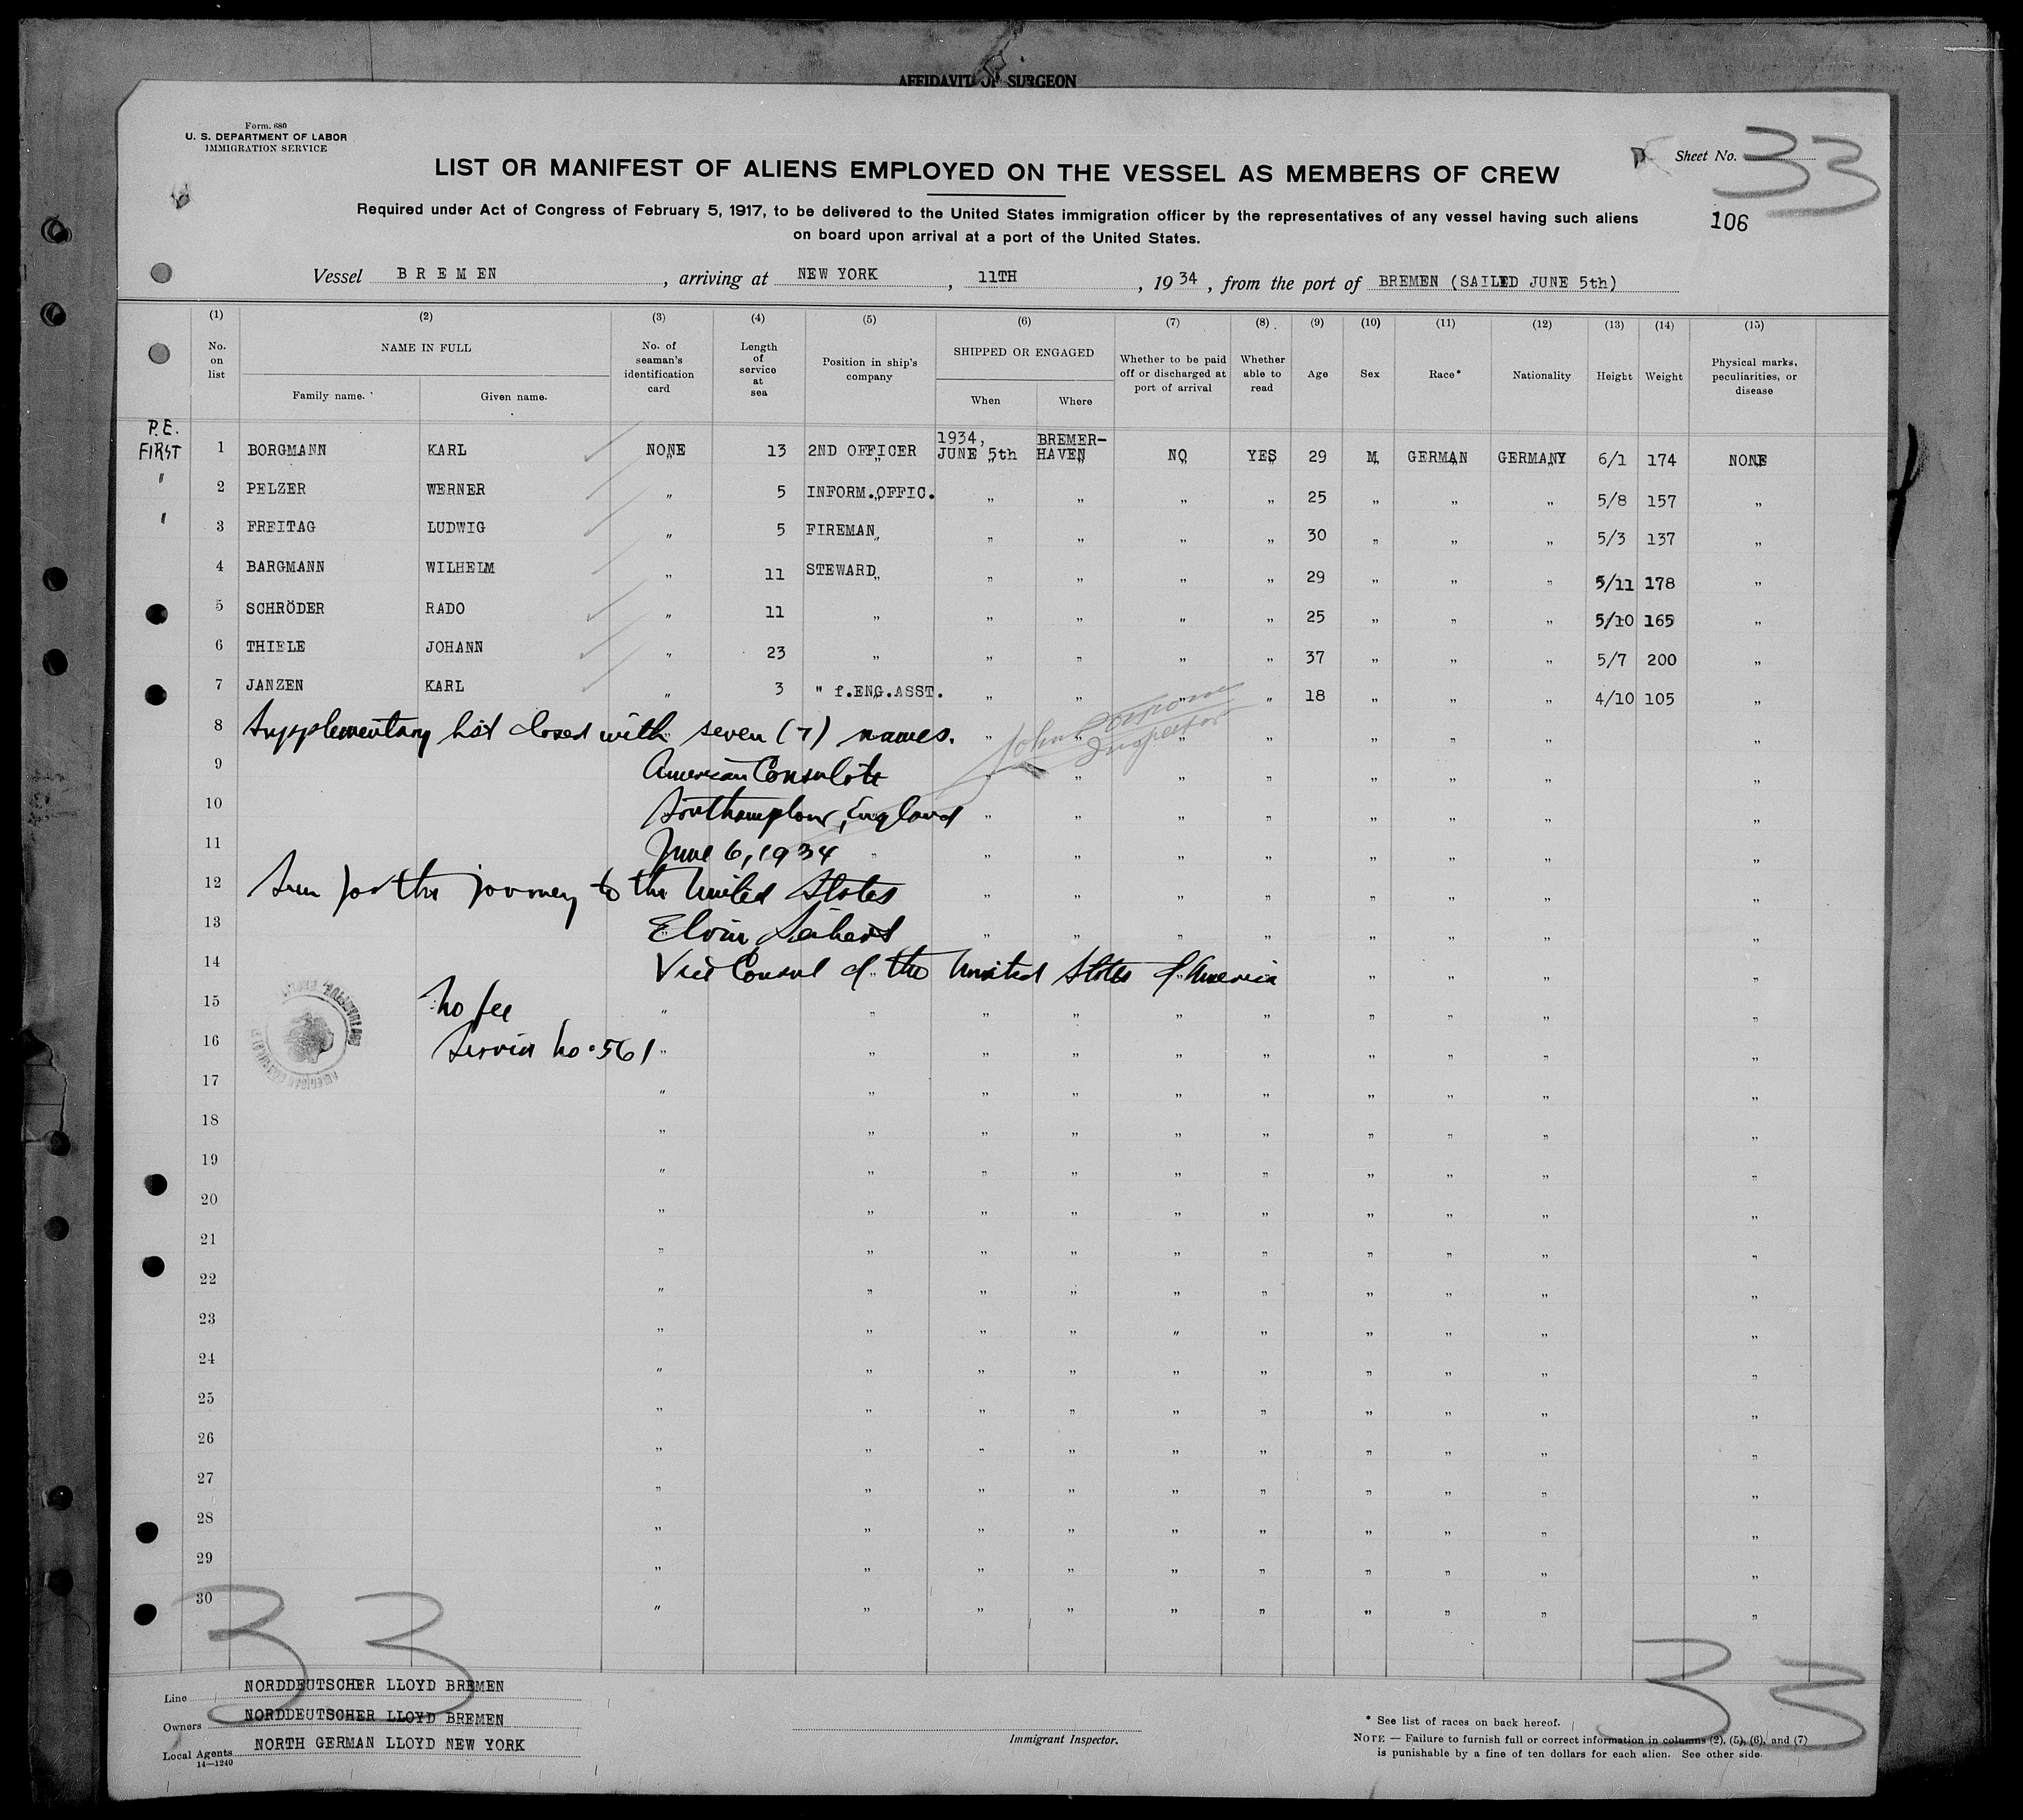 AFFIDAVIT OF SURGEON
Form. 680
U. S. DEPARTMENT OF LABOR
IMMIGRATION SERVICE
Sheet No. 33
LIST OR MANIFEST OF ALIENS EMPLOYED ON THE VESSEL AS MEMBERS OF CREW
Required under Act of Congress of February 5, 1917, to be delivered to the United States immigration officer by the representatives of any vessel having such aliens
on board upon arrival at a port of the United States.
106
Vessel BREMEN, arriving at NEW YORK, 11TH, 1934, from the port of BREMEN (SAILED JUNE 5th)
(1) (2) (3) (4) (5) (6) (7) (8) (9) (10) (11) (12) (13) (14) (15)
No. on list NAME IN FULL Family name. Given name. No. of seaman's identification card Length of service at sea Position in ship's company SHIPPED OR ENGAGED When Where Whether to be paid off or discharged at port of arrival Whether able to read Age Sex Race* Nationality Height Weight Physical marks, peculiarities, or disease
P.E.
FIRST 1 BORGMANN KARL NONE 13 2ND OFFICER 1934, JUNE 5th BREMER-HAVEN NO YES 29 M GERMAN GERMANY 6/1 174 NONE
" 2 PELZER WERNER " 5 INFORM.OFFIC. " " " " 25 " " " 5/8 157 "
" 3 FREITAG LUDWIG " 5 FIREMAN " " " " 30 " " " 5/3 137 "
4 BARGMANN WILHELM " 11 STEWARD " " " " 29 " " " 5/11 178 "
5 SCHRÖDER RADO " 11 " " " " " 25 " " " 5/10 165 "
6 THIELE JOHANN " 23 " " " " " 37 " " " 5/7 200 "
7 JANZEN KARL " 3 " f.ENG.ASST. " " " " 18 " " " 4/10 105 "
8 Supplementary list closed with seven (7) names.
John
Inspector
9 American Consulate
10 Southampton, England
11 June 6, 1934
12 Seen for the journey to the United States
13 Elvin Seibert
14 Vice Consul of the United States of America
15 No fee
16 Service No. 561
17
18
19
20
21
22
23
24
25
26
27
28
29
30
33
33
Line NORDDEUTSCHER LLOYD BREMEN
Owners NORDDEUTSCHER LLOYD BREMEN
Local Agents NORTH GERMAN LLOYD NEW YORK
14—1240
Immigrant Inspector.
* See list of races on back hereof.
NOTE — Failure to furnish full or correct information in columns (2), (5), (6), and (7)
is punishable by a fine of ten dollars for each alien. See other side.